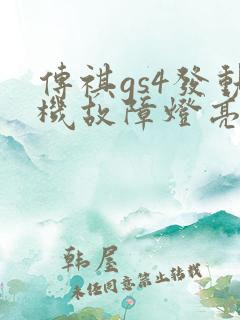 傳祺gs4發動
機故障燈亮
韩屋
未经同意禁止转载